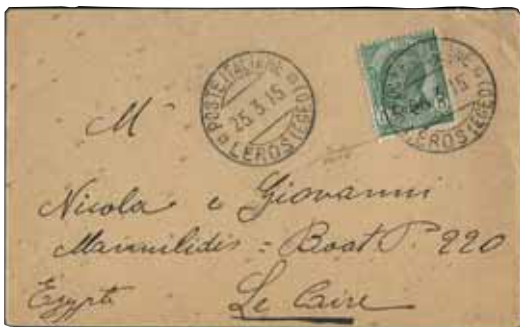 POSTE ITALIANE
25.3.15
LEROS (EGEO)
LEROS (EGEO)
M
Nicola e Giovanni
Manuilidis = Boat P. 220
Egypte Le Caire